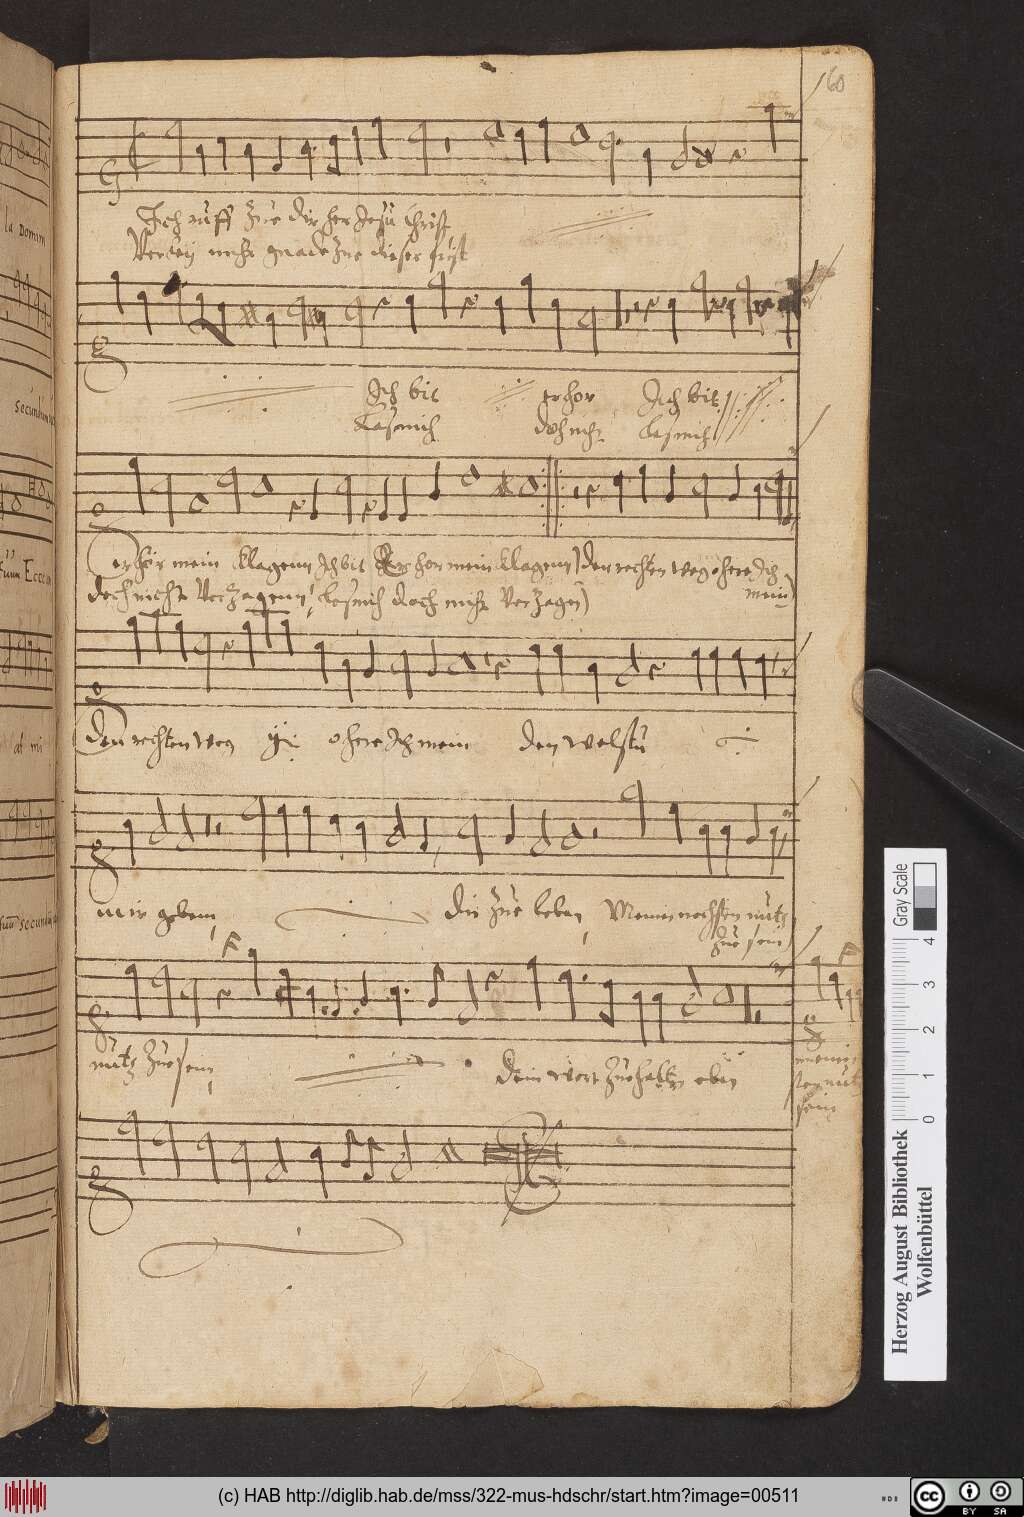 60
Ich ruff zue dir her Jesu christ
Verley mihr gnade zue dieser frist
Ich bit erhor Ich bit
Las mich doh nich las mich
erhör mein klagenn Ich bit Erhor mein klagenn den rechten weg o here Ich
doch nicht Verzagenn las mich doch nicht Verzagen mein
Den rechten weg o here Ich mein den wolstu
mir geben dir zue leben Meinen nechsten nutz
zue sein
nutz zue sein dein wort zue halten eben
sein
la Domini
secundum
Ecce
at mi
secundum
Gray Scale
0 1 2 3 4
Herzog August Bibliothek
Wolfenbüttel
(c) HAB http://diglib.hab.de/mss/322-mus-hdschr/start.htm?image=00511
cc BY SA